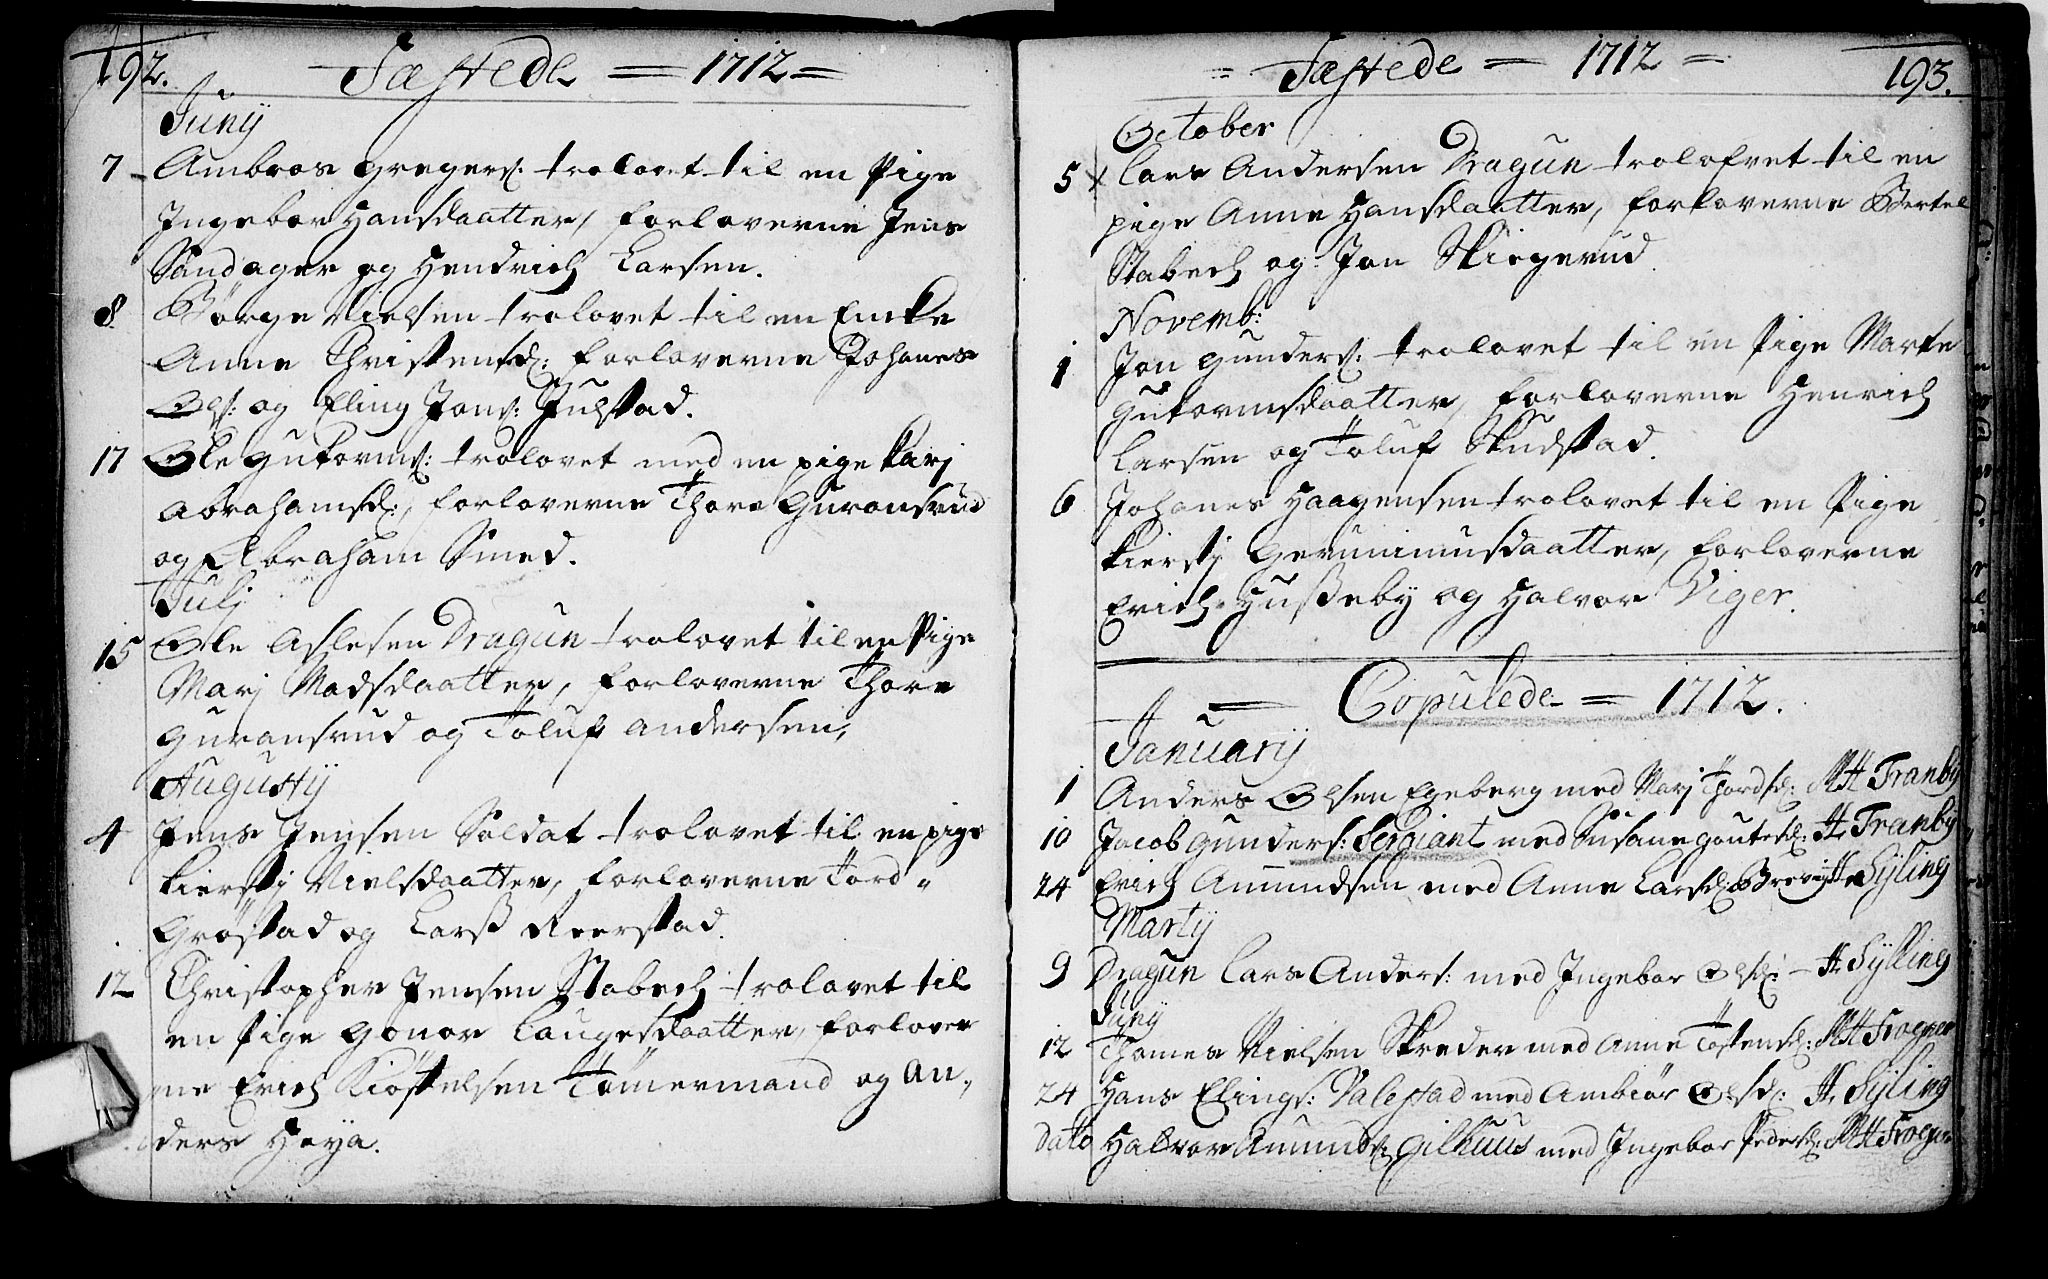 192. Fæstede = 1712 =
Junij
7 Ambros Gregers: trolovet til en Pige
Ingebor Hansdaatter, forloverne Jens
Sandager og Hendrich Larsen.
8 Börge Nielsen trolovet til en Encke
Anne Christensd: forloverne Johanes
Ols: og Eling Jons: Julstad.
17 Ole Gutorms: trolovet med en pige Karj
Abrahamsd:, forloverne Thore Guransrud
og Abraham Smed.
Julj
15 Ole Aslesen Dragun trolovet til en Pige
Marj Madsdaatter, forloverne Thore
Guransrud og Toluf Andersen,
Augustij
4 Jens Jensen Soldat trolovet til en pige
Kierstj Nielsdaatter, forloverne Tord
Gröstad og Larss Reerstad.
12 Christopher Jensen Stabech trolovet til
en Pige Gonor Laugesdaatter, forlover
ne Erich Kiöstelsen Tömermand og An,,
ders Höya.
= Fæstede = 1712 = 193.
October
5 x Lars Andersen Dragun trolofvet til en
pige Anne Hansdaatter, forloverne Bertel
Stabech og Jon Skiegerud
Novemb:
1 Jon Gunders: trolovet til en Pige Marte
Gutormsdaatter, forloverne Henrich
Larsen og Toluf Skudstad.
6 Johanes Haagensen trolovet til en Pige
Kierstj Gerunimusdaatter, forloverne
Erich Husseby og Halvor Viger.
= Copulede = 1712.
Januarij
1 Anders Olsen Egeberg med Marj Thordsd: MH Tranby
10 Jacob Gunders: Sergiant med Susane Goutesd: H Tranby
24 Erich Amundsen med Anne Larsd: H Sylling
Martij
9 Dragun Lars Anders: med Ingebor Olsd: - H Sylling
Junij
12 Thomes Nielsen Skreder med Anne Tostensd: MH Frogner
24 Hans Elings: Valestad med Ambiör Olsd: H Syling
dato Halvor Amunds: Gilhuus med Ingebor Pedersd: MH Frogner